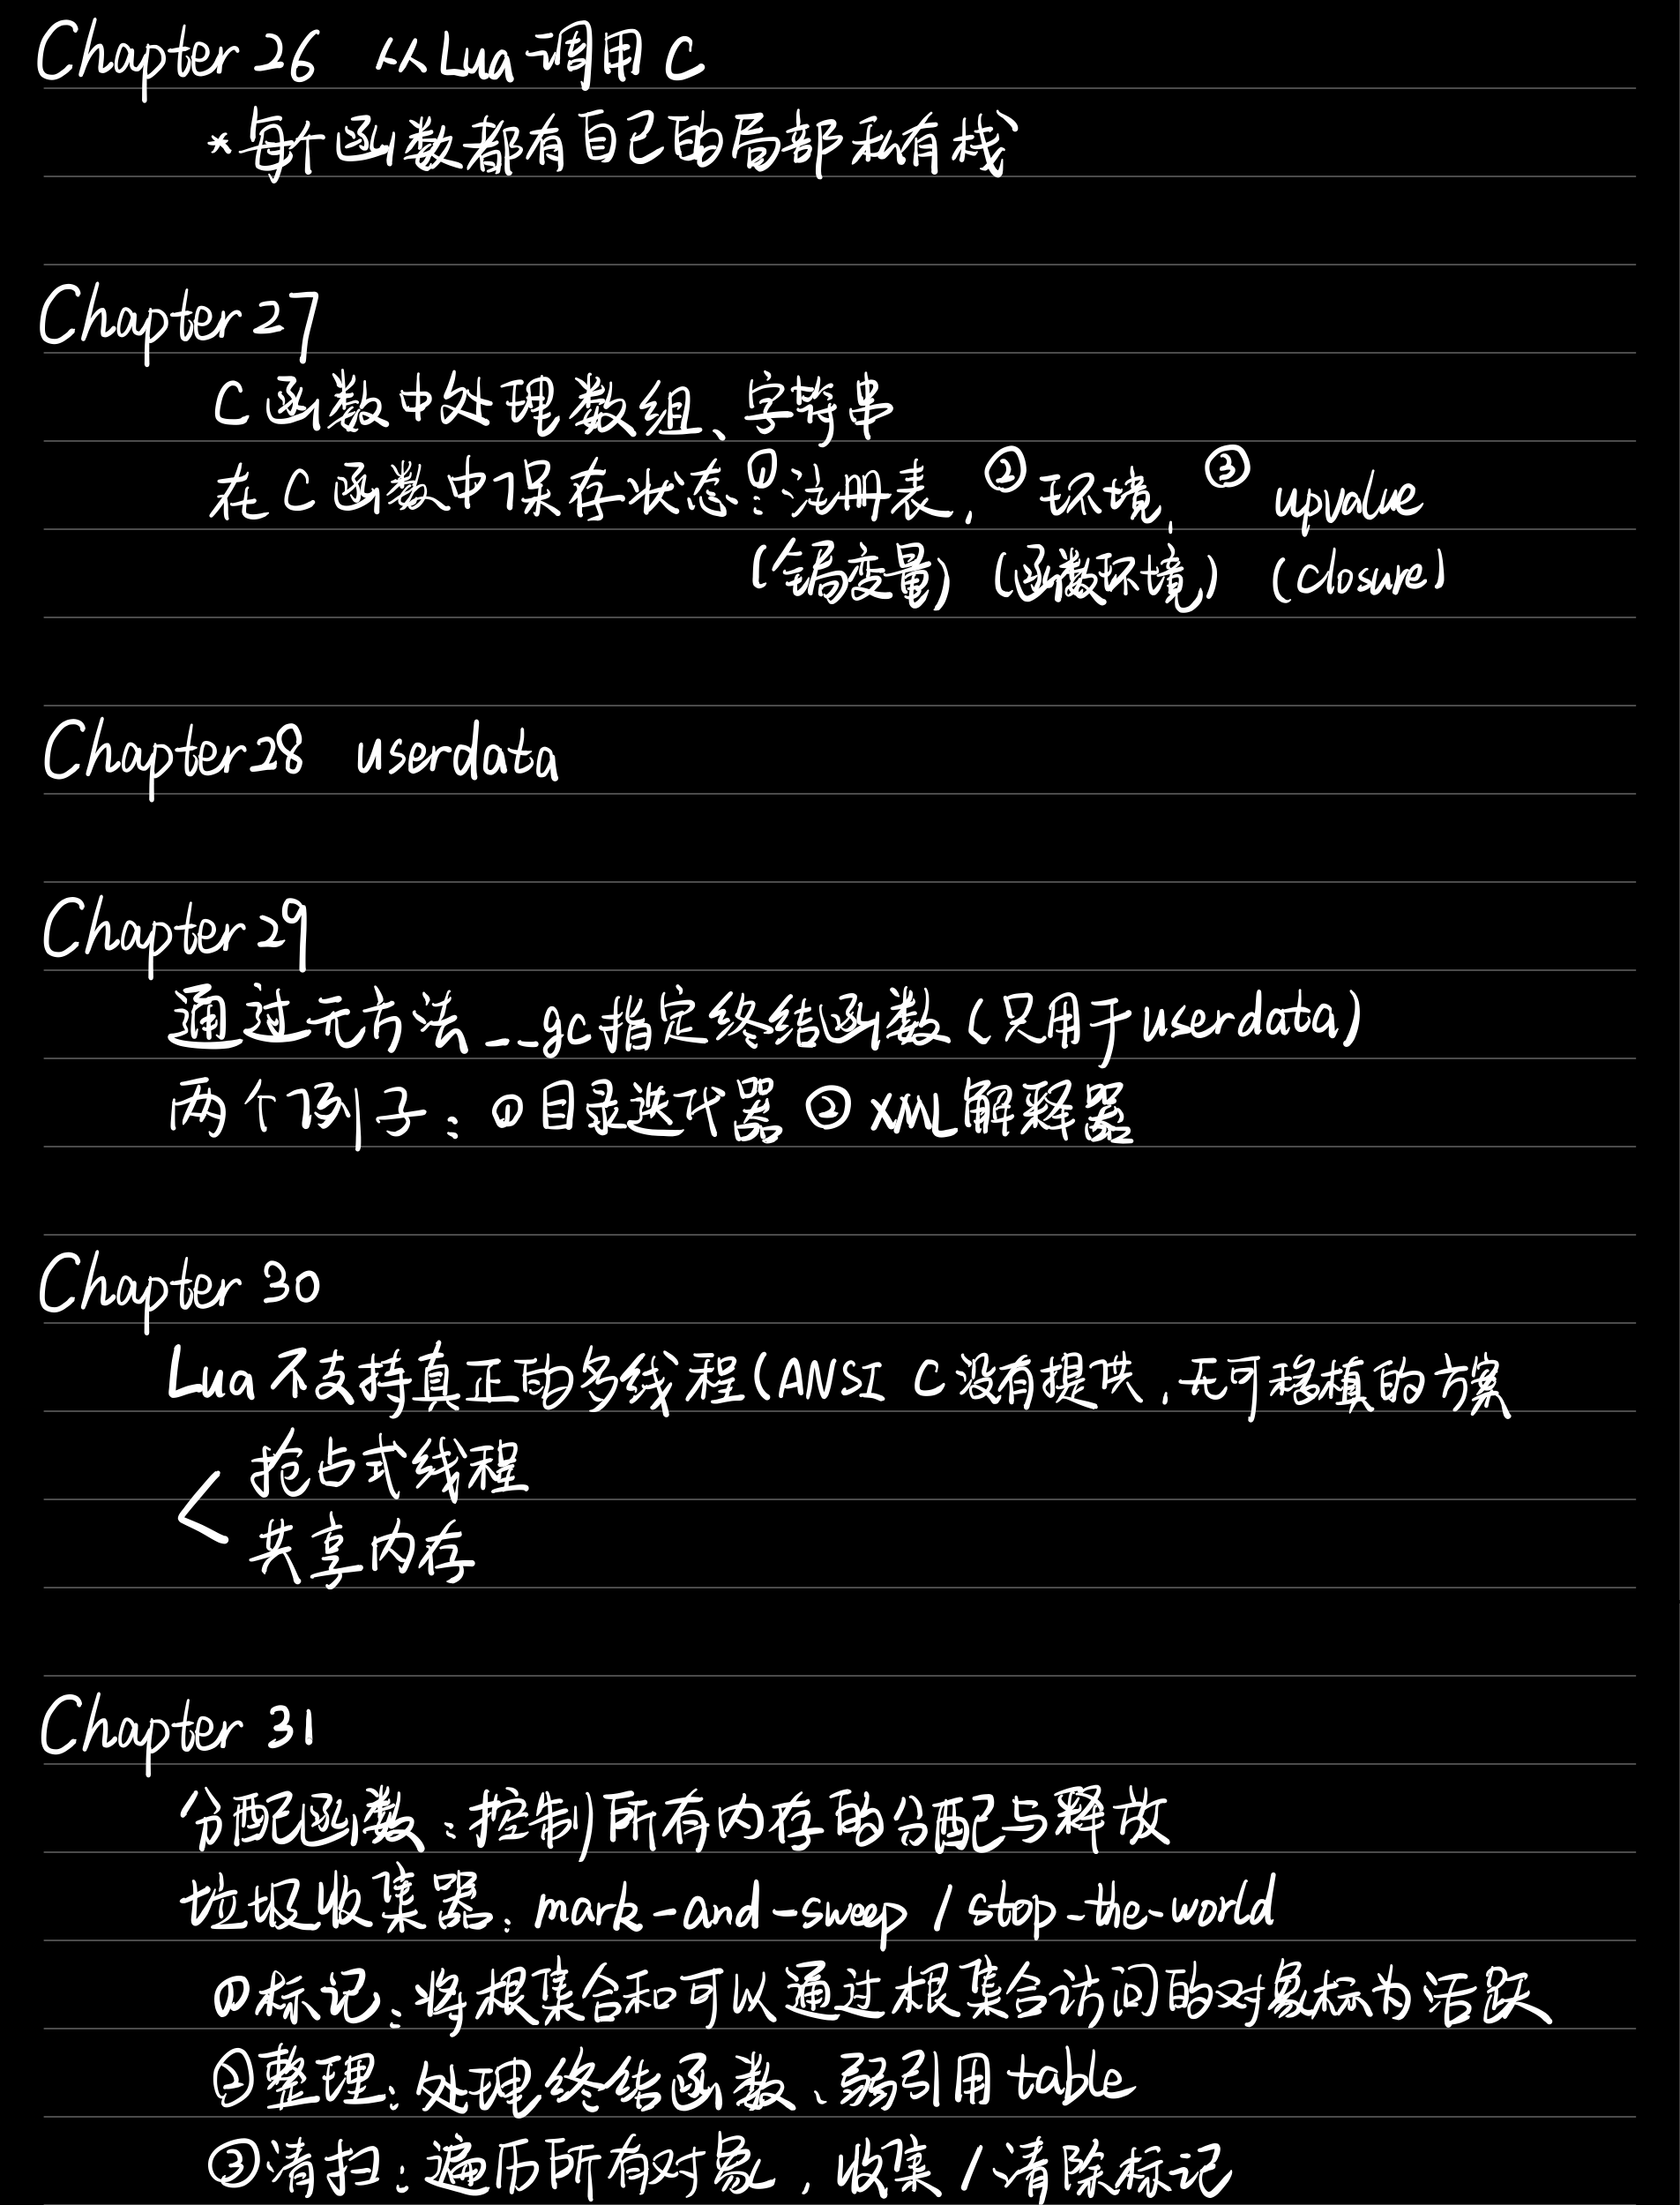 Chapter 26 从Lua调用C
*每个函数都有自己的局部私有栈
Chapter 27
C函数中处理数组、字符串
在C函数中保存状态:①注册表,②环境,③upvalue
(全局变量)(函数环境)(closure)
Chapter 28 userdata
Chapter 29
通过元方法__gc指定终结函数(只用于userdata)
两个例子:①目录迭代器②XML解释器
Chapter 30
Lua不支持真正的多线程(ANSI C没有提供,无可移植的方案
抢占式线程
共享内存
Chapter 31
分配函数:控制所有内存的分配与释放
垃圾收集器:mark-and-sweep/stop-the-world
①标记:将根集合和可以通过根集合访问的对象标为活跃
②整理:处理终结函数、弱引用table
③清扫:遍历所有对象,收集/清除标记